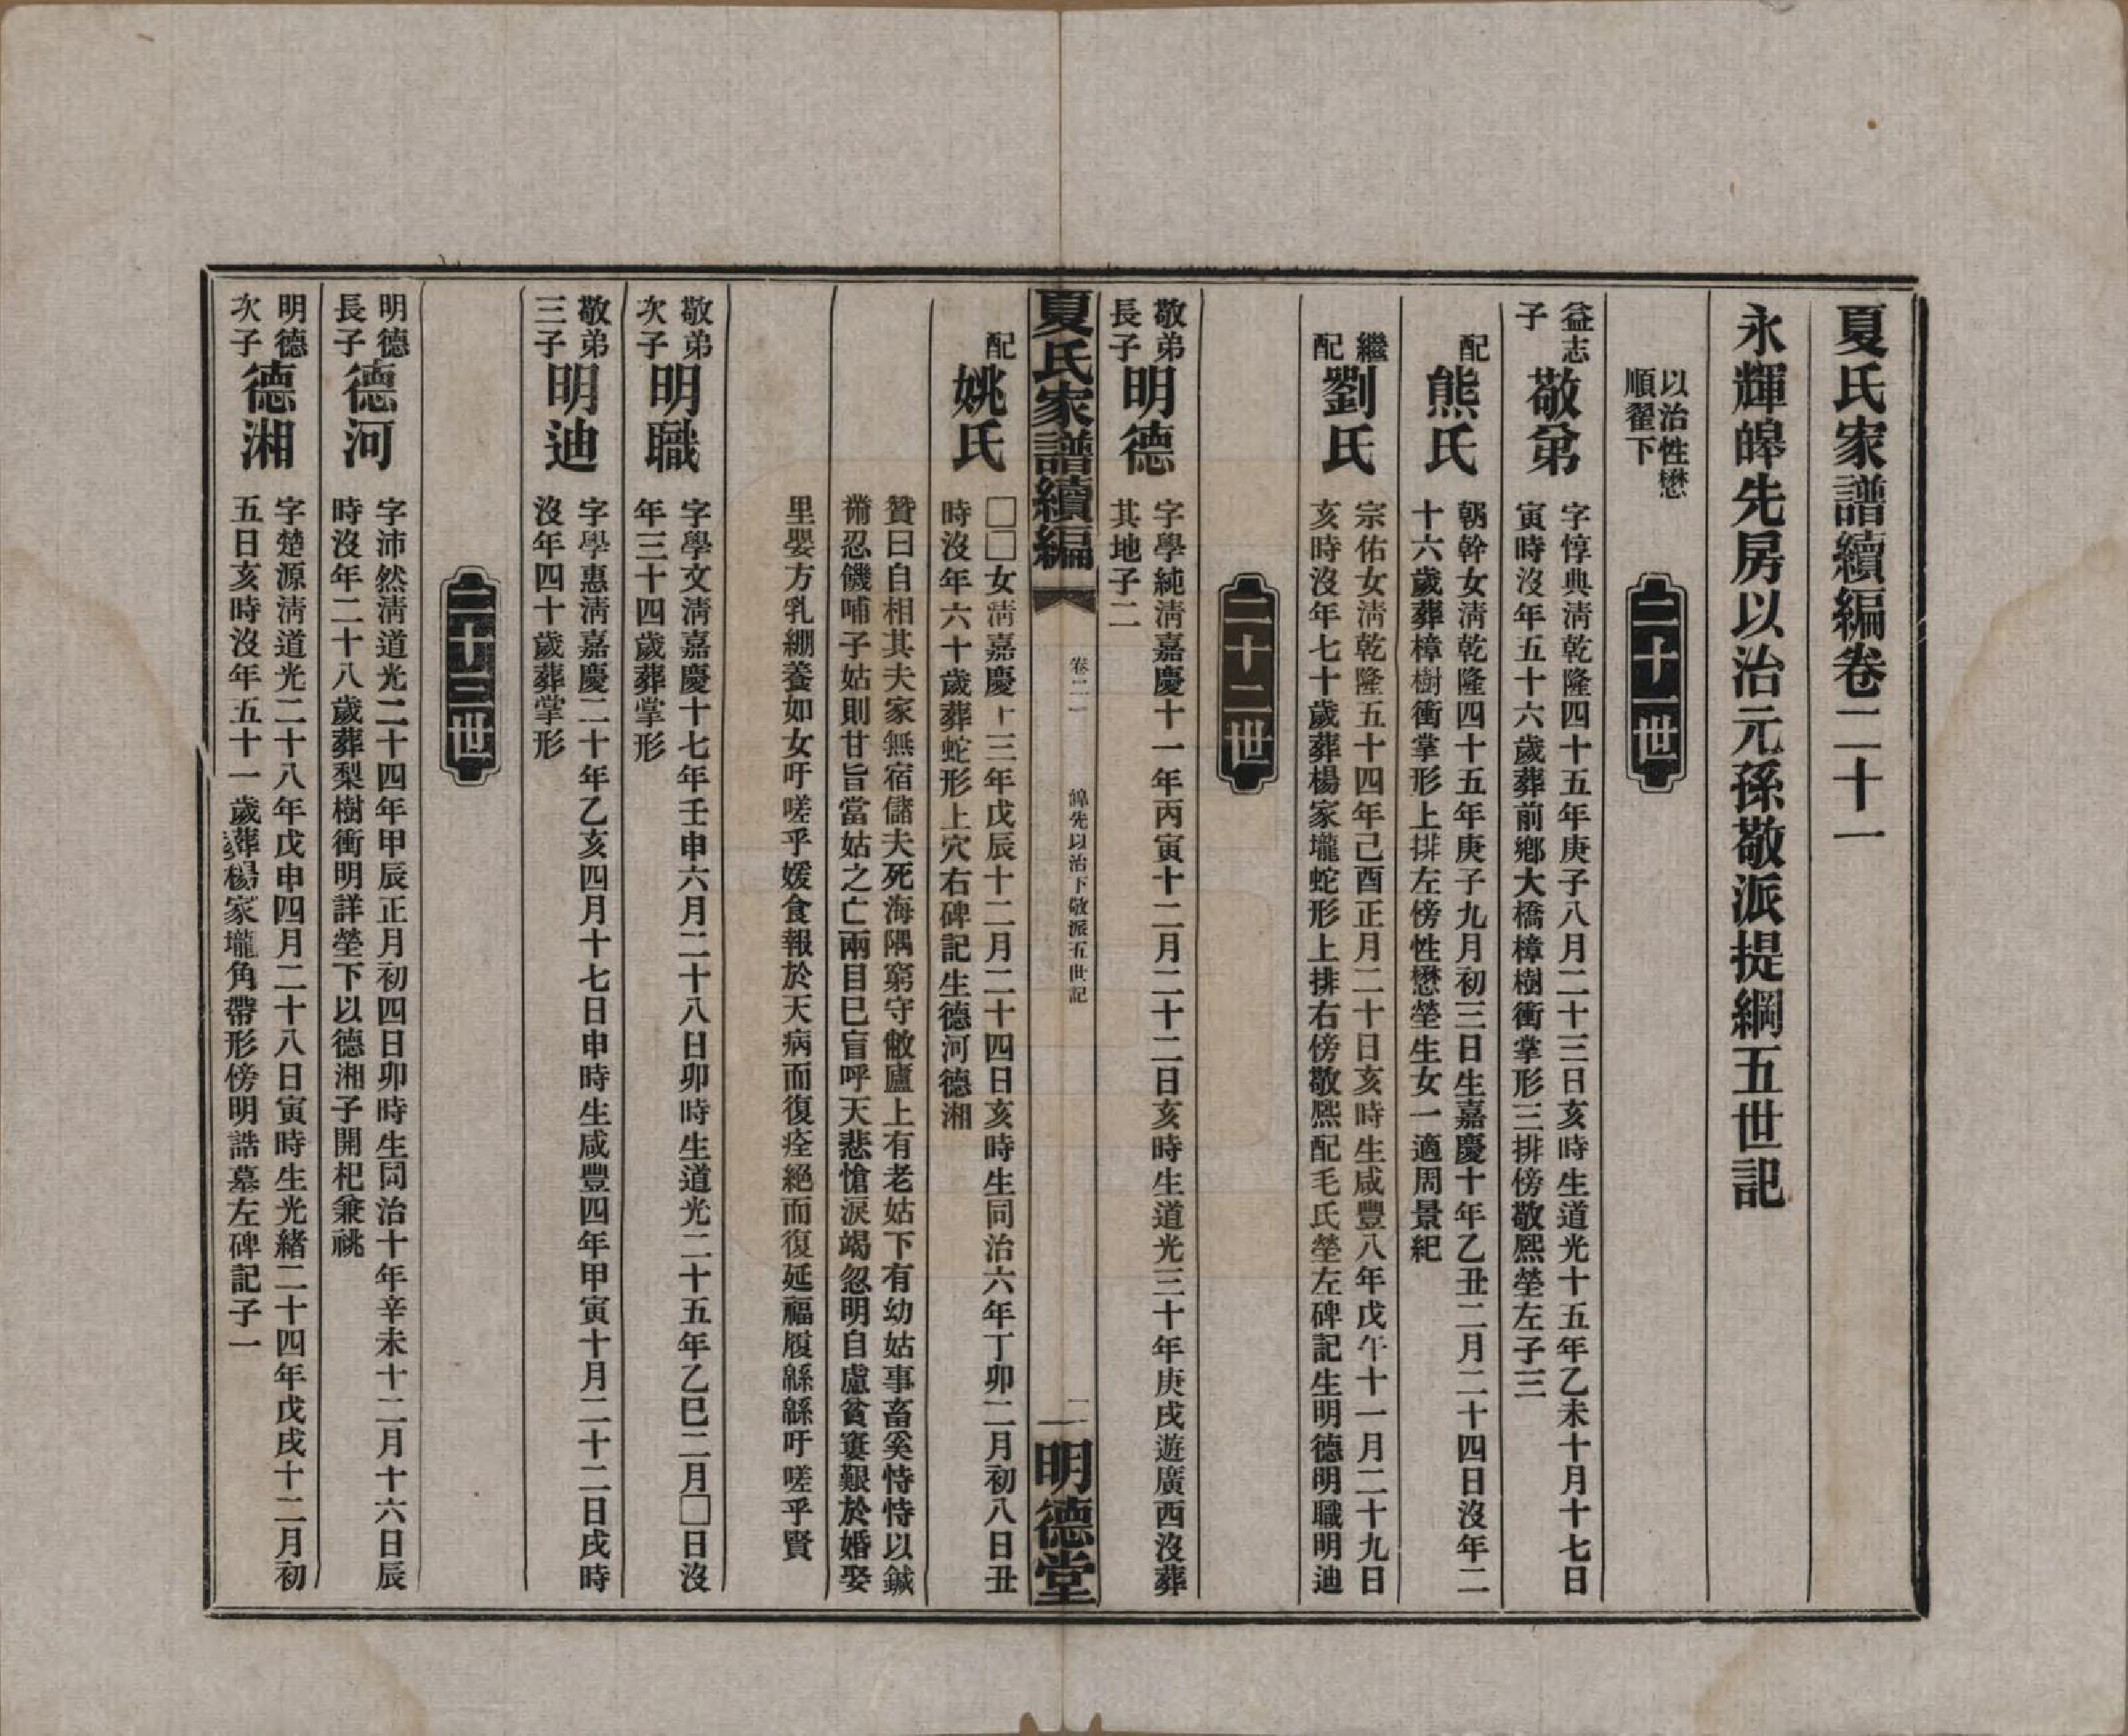 夏氏家譜續編卷二十一
永輝皞先房以治元孫敬派提綱五世記
以治性懋
順翟下
二十一世
益志
子
敬弟
字惇典淸乾隆四十五年庚子八月二十三日亥時生道光十五年乙未十月十七日
寅時沒年五十六歲葬前鄕大橋樟樹衝掌形三排傍敬熙塋左子三
配
熊氏
朝幹女淸乾隆四十五年庚子九月初三日生嘉慶十年乙丑二月二十四日沒年二
十六歲葬樟樹衝掌形上排左傍性懋塋生女一適周景紀
繼
配
劉氏
宗佑女淸乾隆五十四年己酉正月二十日亥時生咸豐八年戊午十一月二十九日
亥時沒年七十歲葬楊家壠蛇形上排右傍敬熙配毛氏塋左碑記生明德明職明迪
二十二世
敬弟
長子
明德
字學純淸嘉慶十一年丙寅十二月二十二日亥時生道光三十年庚戌遊廣西沒葬
其地子二
夏氏家譜續編
卷二一
皞先以治下敬派五世記
二
明德堂
配
姚氏
□□女淸嘉慶十三年戊辰十二月二十四日亥時生同治六年丁卯二月初八日丑
時沒年六十歲葬蛇形上穴右碑記生德河德湘
贊曰自相其夫家無宿儲夫死海隅窮守敝廬上有老姑下有幼姑事畜奚恃恃以鍼
黹忍饑哺子姑則甘旨當姑之亡兩目已盲呼天悲愴淚竭忽明自慮貧寠艱於婚娶
里嬰方乳綳養如女吁嗟乎媛食報於天病而復痊絕而復延福履緜緜吁嗟乎賢
敬弟
次子
明職
字學文淸嘉慶十七年壬申六月二十八日卯時生道光二十五年乙巳二月□日沒
年三十四歲葬掌形
敬弟
三子
明迪
字學惠淸嘉慶二十年乙亥四月十七日申時生咸豐四年甲寅十月二十二日戌時
沒年四十歲葬掌形
二十三世
明德
長子
德河
字沛然淸道光二十四年甲辰正月初四日卯時生同治十年辛未十二月十六日辰
時沒年二十八歲葬梨樹衝明詳塋下以德湘子開杞兼祧
明德
次子
德湘
字楚源淸道光二十八年戊申四月二十八日寅時生光緒二十四年戊戌十二月初
五日亥時沒年五十一歲葬楊家壠角帶形傍明誥墓左碑記子一